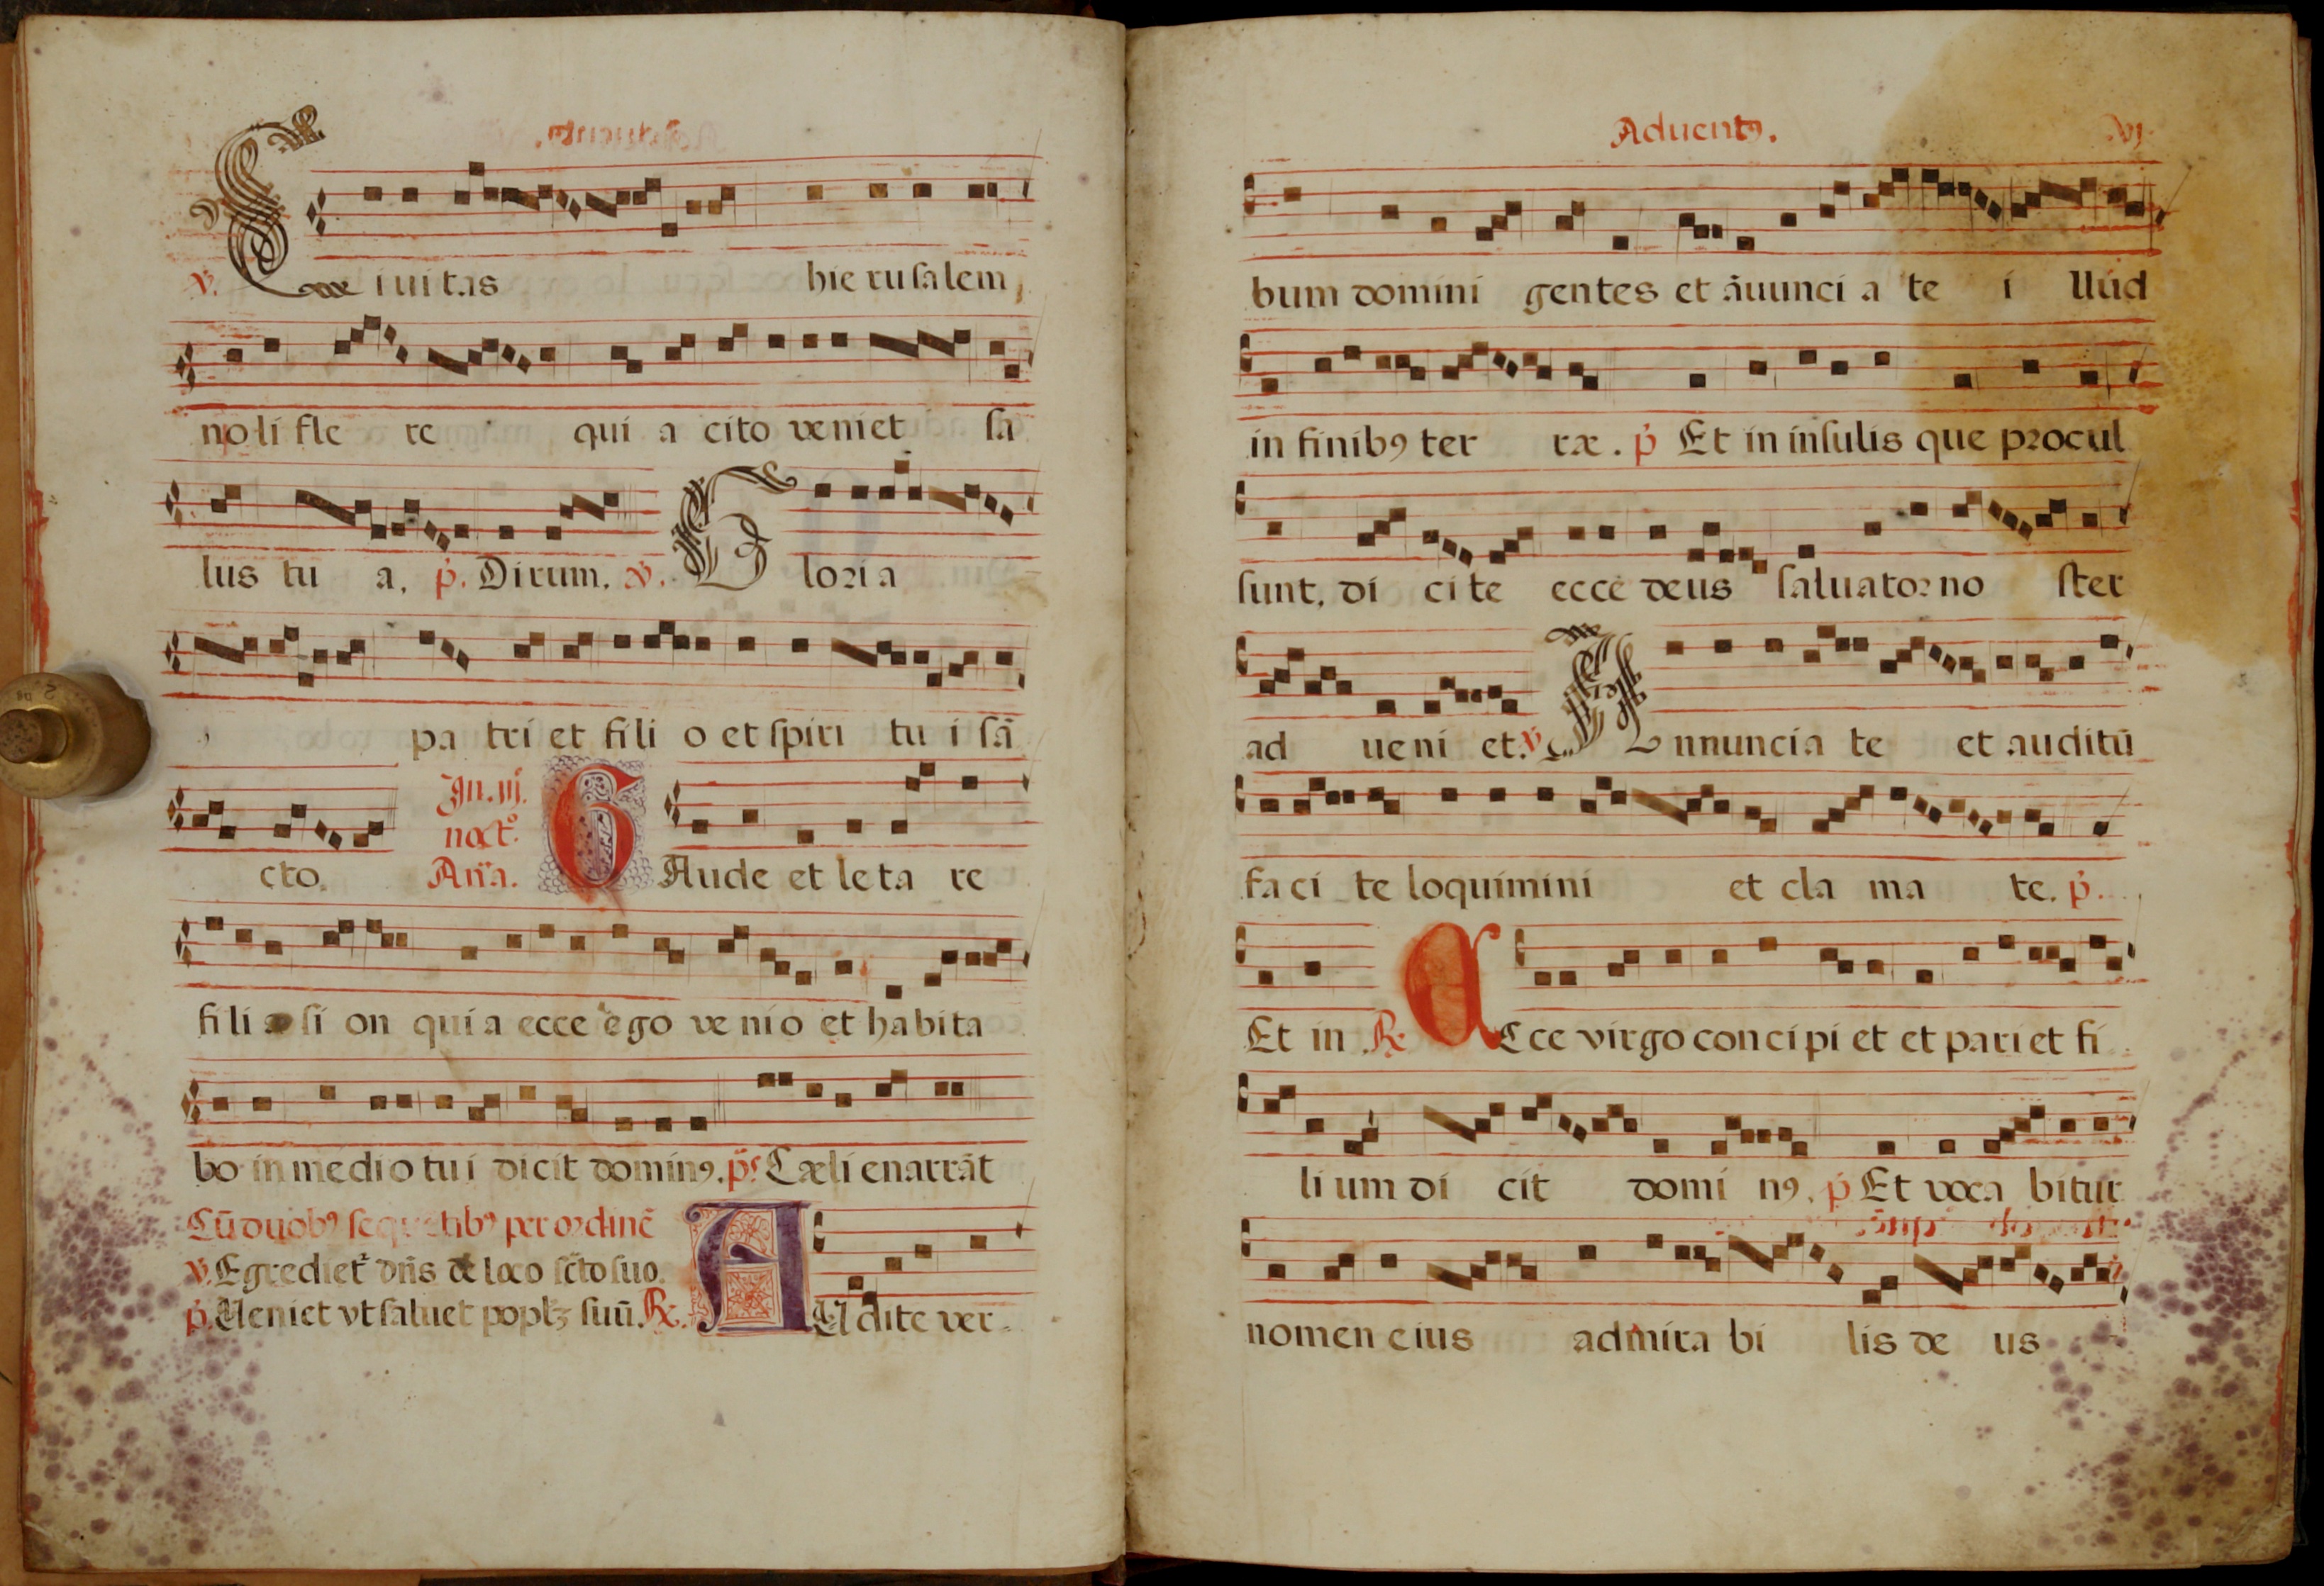 ℣. Ciuitas hierusalem,
noli flere quia cito veniet sa
lus tua. p̄. Dirum. ℣. Gloria
patri et filio et spiritui sā
cto. In .iij. noct.º Aña. GAude et letare
filia sion quia ecce ego venio et habita
bo in medio tui dicit dominꝰ. p̄s Cæli enarrāt
Cū duobꝰ sequētibꝰ per ordinē
℣. Egrediet᷑ dn̄s de loco sc̄to suo.
p̄. Ueniet vt saluet poplꝫ suū. ℟. AUdite ver-
Aduentꝰ. vj
bum domini gentes et ānunciate illud
in finibꝰ terræ. p̄ Et in insulis que procul
sunt, dicite ecce deus saluator noster
adueniet. ℣ Annunciate et auditū
facite loquimini et clamate. p̄.
Et in ℟ ECce virgo concipiet et pariet fi
lium dicit dominꝰ. p̄ Et vocabitur
nomen eius admirabilis deus